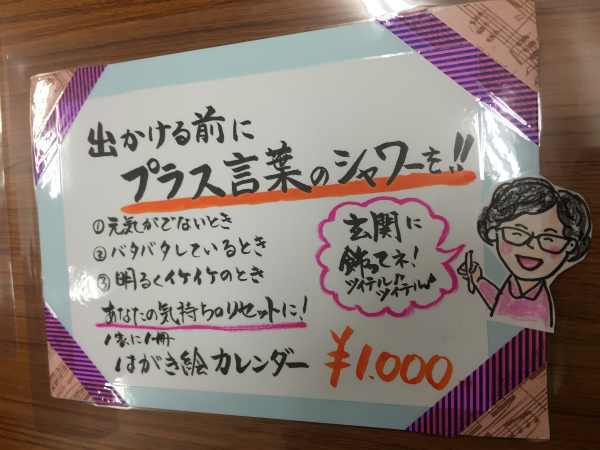 出かける前に
プラス言葉のシャワーを!!
①元気がでないとき
②バタバタしているとき
③明るくイケイケのとき
あなたの気持ちのリセットに!
1家に1冊
はがき絵カレンダー
¥1.000
玄関に
飾ってネ!
ツイテル♪
ツイテル♪